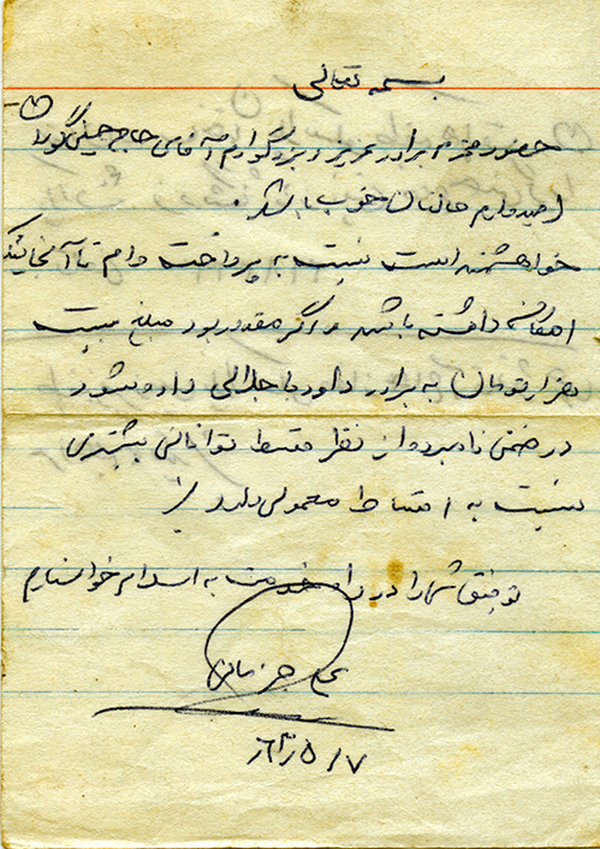 بسمه تعالی
حضور محترم برادر عزیز و بزرگوارم آقای حاج
امیدوارم حالتان خوب باشد.
خواهشمند است نسبت به پرداخت وام تا آنجائیکه
امکان داشته باشد و اگر مقدور بود مبلغ بیست
هزار تومان به برادر داود جلالی داده شود
در ضمن نامبرده از نظر قسط توانائی بیشتری
نسبت به اقساط معمولی دارد
توفیق شما را در راه خدمت به اسلام خواستارم
۶۳/۵/۷